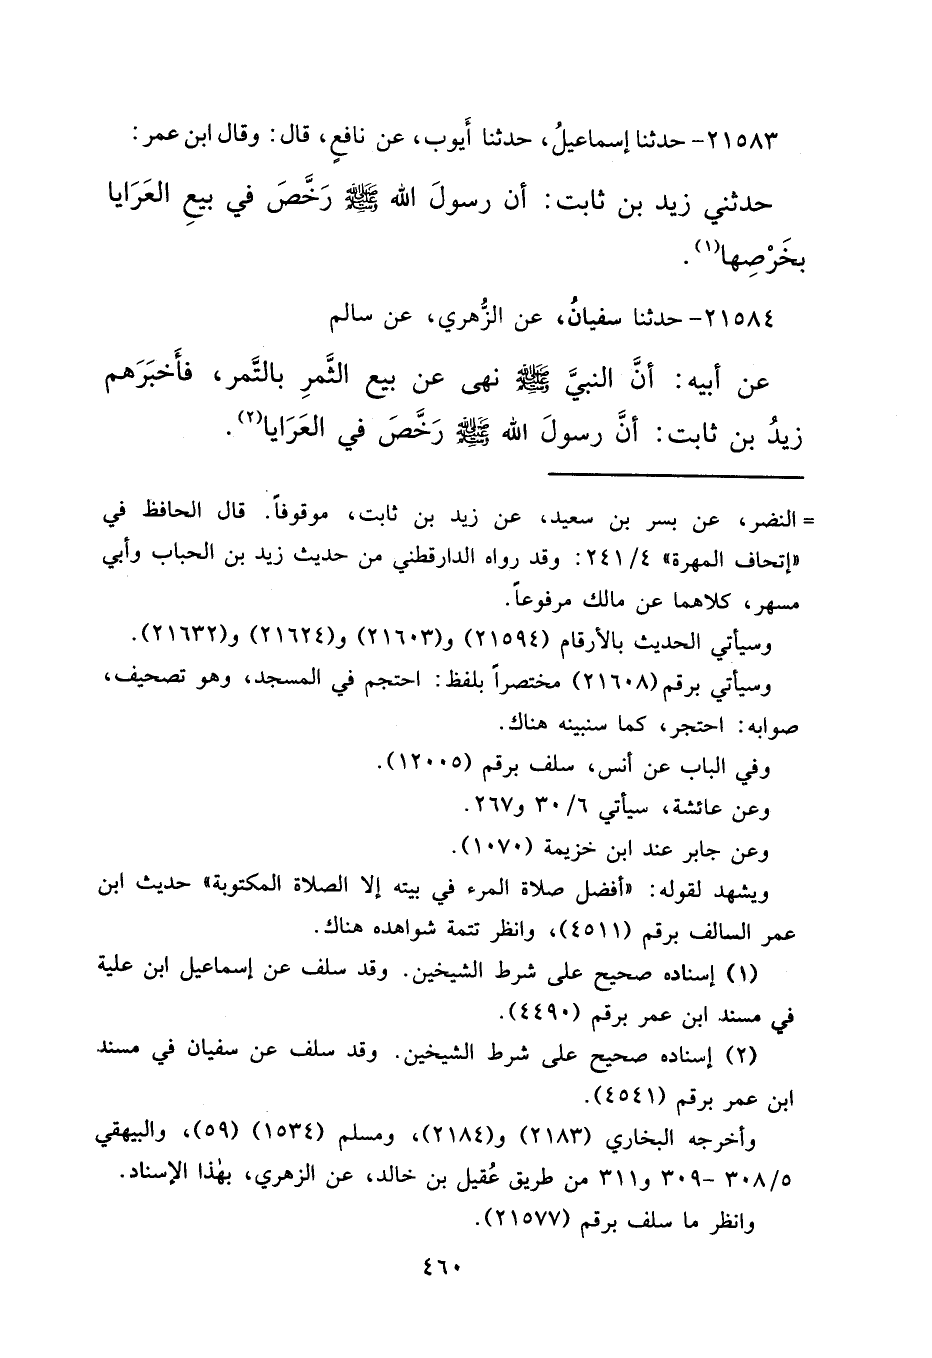 ٢١٥٨٣- حدثنا إسماعيلُ، حدثنا أَيوب، عن نافعٍ، قال: وقال ابن عمر:
حدثني زيد بن ثابت: أن رسولَ الله ﷺ رَخَّصَ في بيعِ العَرَايا
بخَرْصِها(١).
٢١٥٨٤- حدثنا سفيانُ، عن الزُّهري، عن سالم
عن أبيه: أنَّ النبيَّ ﷺ نهى عن بيع الثَّمرِ بالتَّمر، فأَخبَرَهم
زيدُ بن ثابت: أنَّ رسولَ الله ﷺ رَخَّصَ في العَرَايا(٢).
= النضر، عن بسر بن سعيد، عن زيد بن ثابت، موقوفاً. قال الحافظ في
«إتحاف المهرة» ٢٤١/٤: وقد رواه الدارقطني من حديث زيد بن الحباب وأبي
مسهر، كلاهما عن مالك مرفوعاً.
وسيأتي الحديث بالأرقام (٢١٥٩٤) و(٢١٦٠٣) و(٢١٦٢٤) و(٢١٦٣٢).
وسيأتي برقم (٢١٦٠٨) مختصراً بلفظ: احتجم في المسجد، وهو تصحيف،
صوابه: احتجر، كما سنبينه هناك.
وفي الباب عن أنس، سلف برقم (١٢٠٠٥).
وعن عائشة، سيأتي ٣٠/٦ و٢٦٧.
وعن جابر عند ابن خزيمة (١٠٧٠).
ويشهد لقوله: «أفضل صلاة المرء في بيته إلا الصلاة المكتوبة» حديث ابن
عمر السالف برقم (٤٥١١)، وانظر تتمة شواهده هناك.
(١) إسناده صحيح على شرط الشيخين. وقد سلف عن إسماعيل ابن علية
في مسند ابن عمر برقم (٤٤٩٠).
(٢) إسناده صحيح على شرط الشيخين. وقد سلف عن سفيان في مسند
ابن عمر برقم (٤٥٤١).
وأخرجه البخاري (٢١٨٣) و(٢١٨٤)، ومسلم (١٥٣٤) (٥٩)، والبيهقي
٣٠٨/٥ -٣٠٩ و٣١١ من طريق عُقيل بن خالد، عن الزهري، بهٰذا الإسناد.
وانظر ما سلف برقم (٢١٥٧٧).
٤٦٠